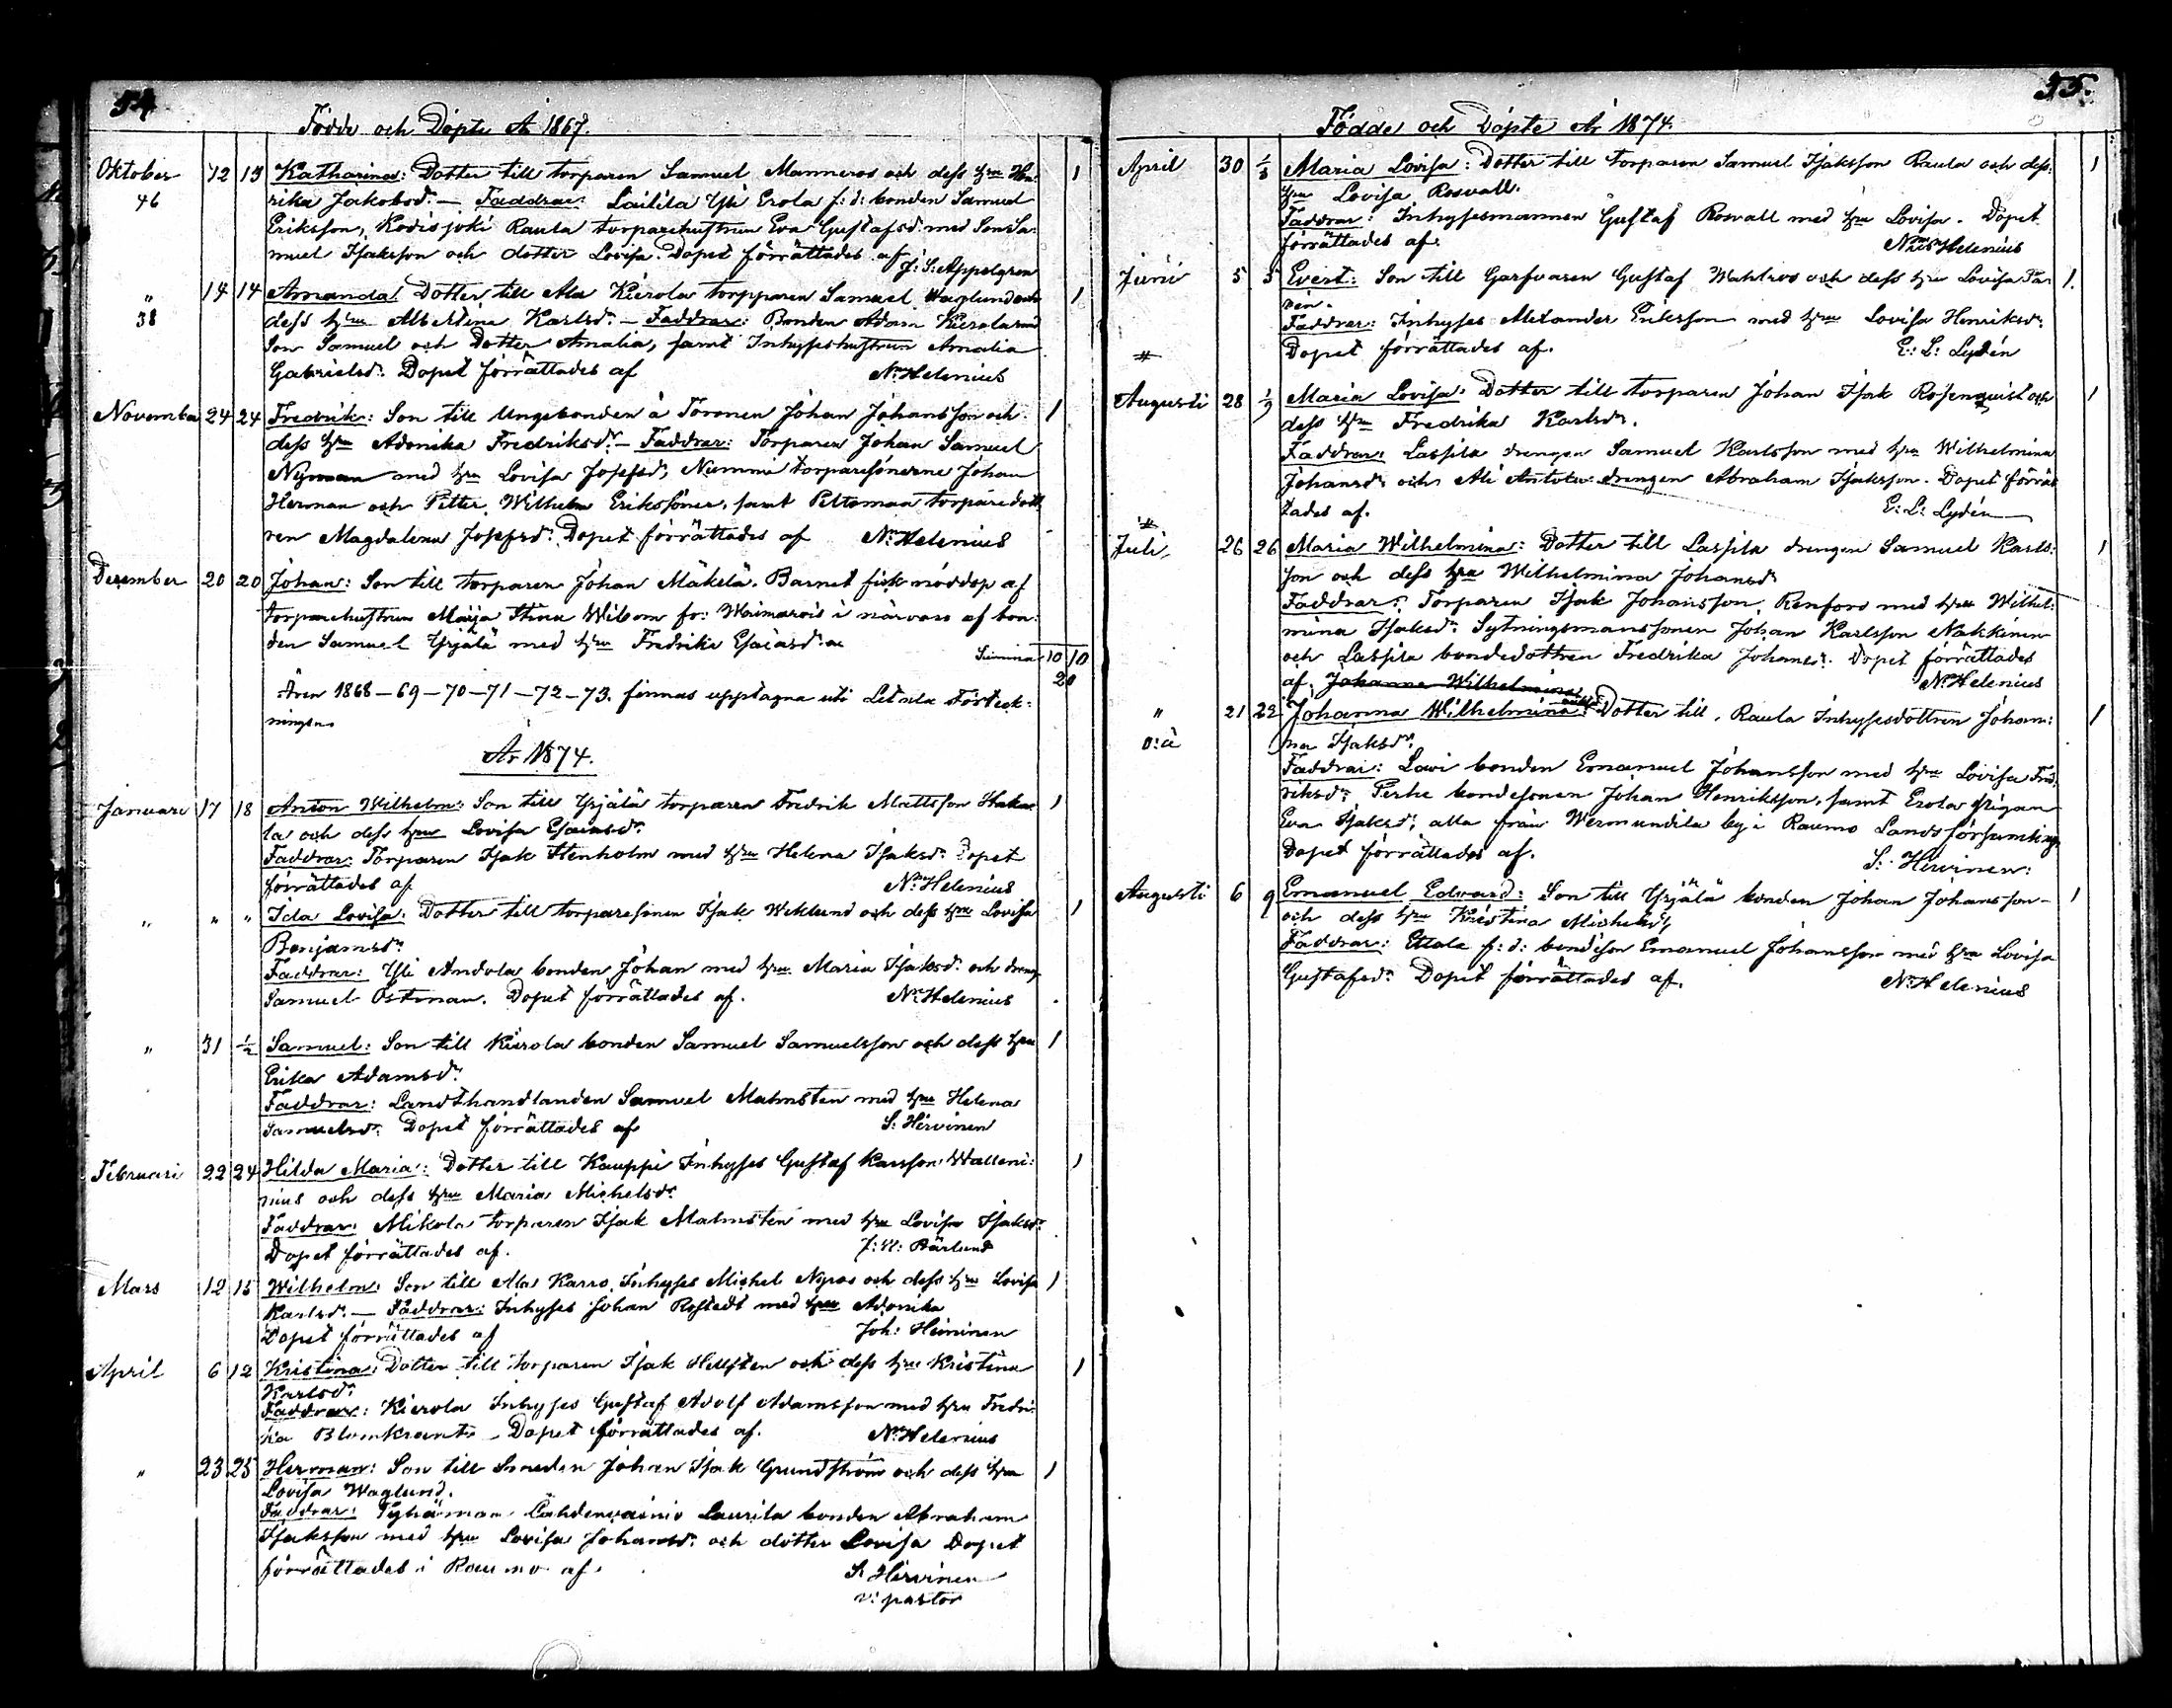 54
Födde och Döpte År 1867.
Oktober 12 13 Katharina: Dotter till torparen Samuel Manneros och dess hru Hen- 1
46 rika Jakobsd. — Faddrar: Lailila Yli Erola f: d: bonden Samuel
Eriksson, Kodisjoki Raula torparehustrun Eva Gustafsd. med Son Sa-
muel Isaksson och dotter Lovisa. Dopet förrättades af J: S: Appelgren
" 14 14 Amanda: Dotter till Ala Kierola torpparen Samuel Waglund och 1
38 dess hru Albertina Karlsd. — Faddrar: Bonden Adam Kierola med
Son Samuel och Dotter Amalia, samt Inhyseshustrun Amalia
Gabrielsd. Dopet förrättades af N. Helenius
November 24 24 Fredrik: Son till Ungebonden å Toronen Johan Johansson och 1
dess hru Adonika Fredriksd. — Faddrar: Torparen Johan Samuel
Nyman med hru Lovisa Josefsd, Nummi torparesönerne Johan
Herman och Petter Wilhelm Erikssöner, samt Peltoman torparedott
ren Magdalena Josefsd. Dopet förrättades af N. Helenius
December 20 20 Johan: Son till torparen Johan Mäkelä. Barnet fick nöddop af
torparehustrun Maija Stina Wilbom fr: Waimarois i närvaro af bon-
den Samuel Yrjälä med hru Fredrika Esaiasd.
Summa 10 10
20
Åren 1868-69-70-71-72-73. finnas upptagna uti Letala Förteck-
ningen
År 1874.
Januari 17 18 Anton Wilhelm: Son till Yrjälä torparen Fredrik Mattsson Haka 1
la och dess hru Lovisa Esaiasd.
Faddrar: Torparen Isak Stenholm med hru Helena Isaksd. Dopet
förrättades af N. Helenius
" " " Ida Lovisa: Dotter till torparesonen Isak Weklund och dess hru Lovisa 1
Benjamsd.
Faddrar: Yli Andola bonden Johan med hru Maria Isaksd. och dreng
Samuel Östman. Dopet förrättades af. N. Helenius
" 31 1/2 Samuel: Son till Kierola bonden Samuel Samuelsson och dess hru 1
Erika Adamsd.
Faddrar: Landthandlanden Samuel Malmsten med hru Helena
Samuelsd. Dopet förrättades af S. Hirvinen
Februari 22 24 Hilda Maria: Dotter till Kauppi Inhyses Gustaf Karsson Walleni- 1
nius och dess hru Maria Michelsd.
Faddrar: Mikola torparen Isak Malmsten med hru Lovisa Isaksd.
Dopet förrättades af. Bärlund
Mars 12 15 Wilhelm: Son till Ala Karro Inhyses Michel Nyroos och dess hru Lovisa 1
Karlsd. — Faddrar: Inhyses Johan Rostedt med hru Adonika
Dopet förrättades af Joh: Heininen
April 6 12 Kristina: Dotter till torparen Isak Hellsten och dess hru Kristina 1
Karlsd.
Faddrar: Kierola Inhyses Gustaf Adolf Adamsson med hru Fredri-
ka Blomkrants. Dopet förrättades af. N. Helenius
" 23 25 Herman: Son till Smeden Johan Isak Grundström och dess hru 1
Lovisa Waglund.
Faddrar: Lähdenvainio Laurila bonden Abraham
Isaksson med hru Lovisa Johansd. och dotter Lovisa Dopet
förrättades i Raumo af. S. Hirvinen
v: pastor
55.
Födde och Döpte År 1874.
April 30 1/5 Maria Lovisa: Dotter till torparen Samuel Isaksson Raula och dess 1
hru Lovisa Rosvall.
Faddrar: Inhysesmannen Gustaf Rosvall med hru Lovisa. Dopet
förrättades af. Nils Helenius
Junii 5 5 Evert: Son till Garfvaren Gustaf Wahlroos och dess hru Lovisa Ta- 1.
nén.
Faddrar: Inhyses Alexander Eriksson med hru Lovisa Henriksd.
# Dopet förrättades af. E: L: Lydén
Augusti 28 1/9 Maria Lovisa: Dotter till torparen Johan Isak Rosenqvist och 1
dess hru Fredrika Karlsd.
Faddrar: Laspila drengen Samuel Karlsson med hru Wilhelmina
Johansd. och Ali Antola drengen Abraham Isaksson. Dopet förrät
tades af. E: L: Lydén
#
Juli 26 26 Maria Wilhelmina: Dotter till Laspila drengen Samuel Karls- 1
son och dess hru Wilhelmina Johansd.
Faddrar: Torparen Isak Johansson Renfors med hru Wilhel-
mina Isaksd. Sytningsmanssonen Johan Karlsson Nakkinen
och Laspila bondedottren Fredrika Johansd. Dopet förrättades
af. Johanna Wilhelmina N. Helenius
" 21 22 Johanna Wilhelmina: oäkta Dotter till Raula Inhysesdottren Johan- 1
o: ä na Isaksd.
Faddrar: Lavi bonden Emanuel Johansson med hru Lovisa Fred-
riksd. Perhe bondesonen Johan Henriksson, samt Erola pigan
Eva Isaksd. alla från Wermundila by i Raumo Landsförsamling
Dopet förrättades af. S: Hirvinen.
Augusti 6 9 Emanuel Edvard: Son till Yrjälä bonden Johan Johansson 1
och dess hru Kristina Michelsd.
Faddrar: Uttola f: d: bondeson Emanuel Johansson med hru Lovisa
Gustafsd. Dopet förrättades af. N. Helenius